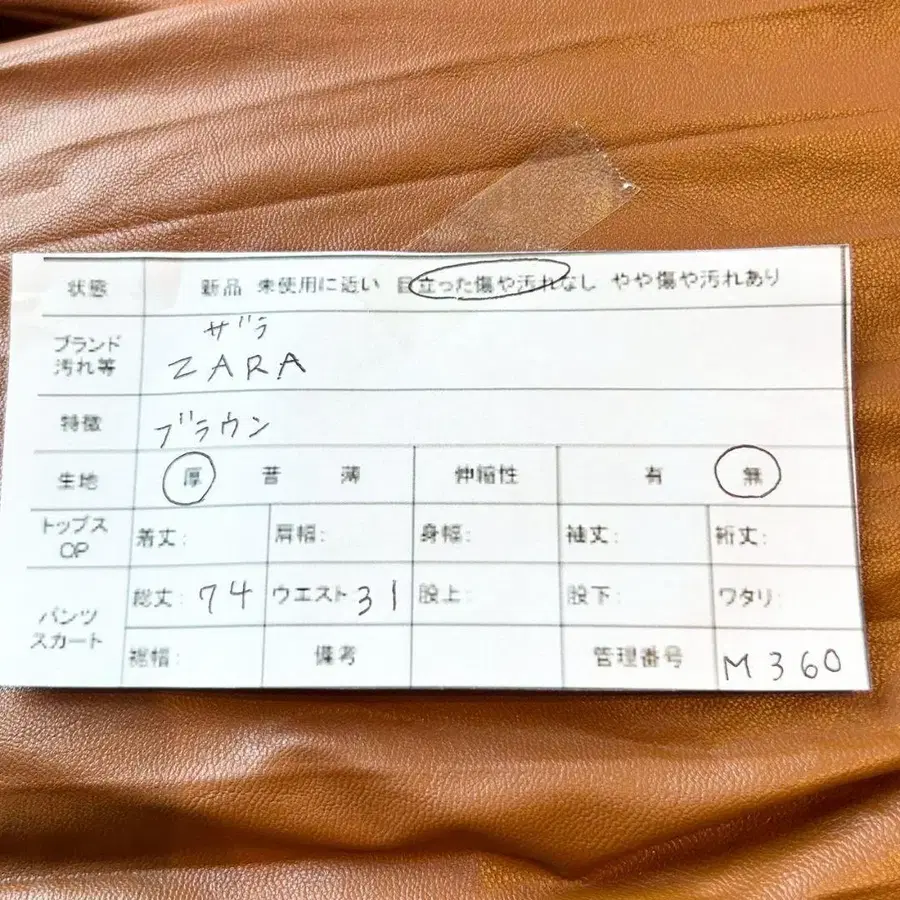 状態 新品 未使用に近い 目立った傷や汚れなし やや傷や汚れあり
ザラ
ブランド
汚れ等 ZARA
特徴 ブラウン
生地 厚 普 薄 伸縮性 有 無
トップス
OP 着丈: 肩幅: 身幅: 袖丈: 裄丈:
パンツ
スカート 総丈: 74 ウエスト 31 股上: 股下: ワタリ:
裾幅: 備考 管理番号 M360